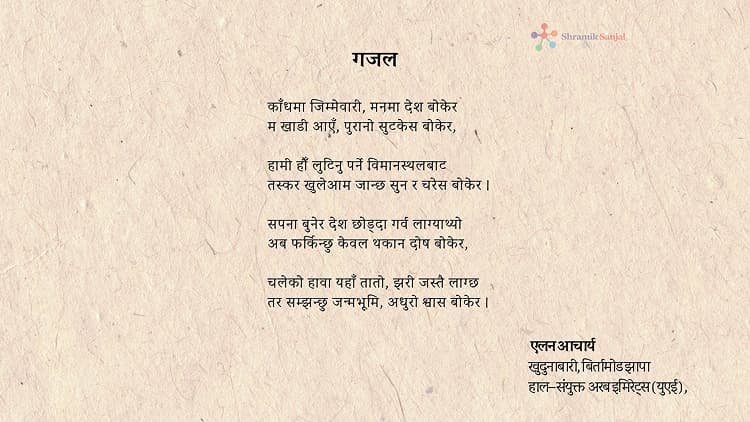 Shramik Sanjal
गजल
काँधमा जिम्मेवारी, मनमा देश बोकेर
म खाडी आएँ, पुरानो सुटकेस बोकेर,
हामी हौँ लुटिनु पर्ने विमानस्थलबाट
तस्कर खुलेआम जान्छ सुन र चरेस बोकेर ।
सपना बुनेर देश छोड्दा गर्व लाग्याथ्यो
अब फर्किन्छु केवल थकान दोष बोकेर,
चलेको हावा यहाँ तातो, झरी जस्तै लाग्छ
तर सम्झन्छु जन्मभूमि, अधुरो श्वास बोकेर ।
एलन आचार्य
खुदुनाबारी, बिर्तामोड झापा
हाल–संयुक्त अरब इमिरेट्स (युएई),